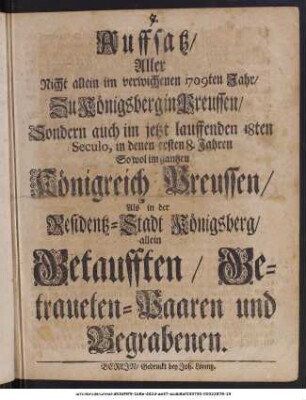 Auffsatz/
Aller
Nicht allein im verwichenen 1709ten Jahr/
Zu Königsberg in Preussen/
Sondern auch im jetzt lauffenden 18ten
Seculo, in denen ersten 8. Jahren
So wol im gantzen
Königreich Preussen/
Als in der
Residentz-Stadt Königsberg/
allein
Getaufften/ Ge-
traueten-Paaren und
Begrabenen.
BERLIN/ Gedruckt bey Joh. Lorentz.